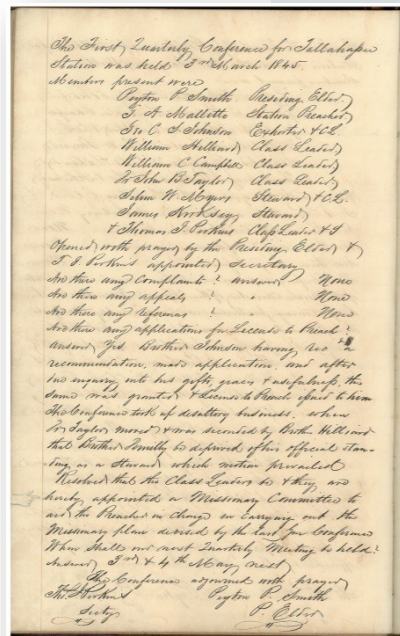 The First Quarterly Conference for Tallahassee
Station was held 3rd March 1845.
Members present were
Peyton P. Smith Presiding Elder
T. A. Mallette Station Preacher
C. S. Johnson Exhorter & C.L.
William Hilliard Class Leader
William C Campbell Class Leader
Dr John B Taylor Class Leader
John W. Myers Steward & C.L.
James Kirksey Steward
& Thomas J. Perkins Class Leader & S
Opened with prayer by the Presiding Elder &
T. J. Perkins appointed secretary
Are there any Complaints? answer None
Are there any appeals? " None
Are there any referenas? " None
Are there any applications for License to Preach?
answer Yes. Brother Johnson having a
recommendation, made application, and after
due inquiry into his gifts, graces & usefulness, the
same was granted & License to Preach to him
The Conference took up desultory business. when
Dr Taylor moved & was seconded by Brother Hilliard
that Brother be deprived of his official stan-
ding as a Steward which motion prevailed
Resolved that the Class Leaders be & they are
hereby appointed a Missionary Committee to
aid the Preacher in Charge in carrying out the
Missionary plan devised by the last Conference
When shall our next Quarterly Meeting be held?
Answer 3rd & 4th May next
The Conference adjourned with prayer
Thos. J Perkins Peyton P. Smith
Secty P. Elder